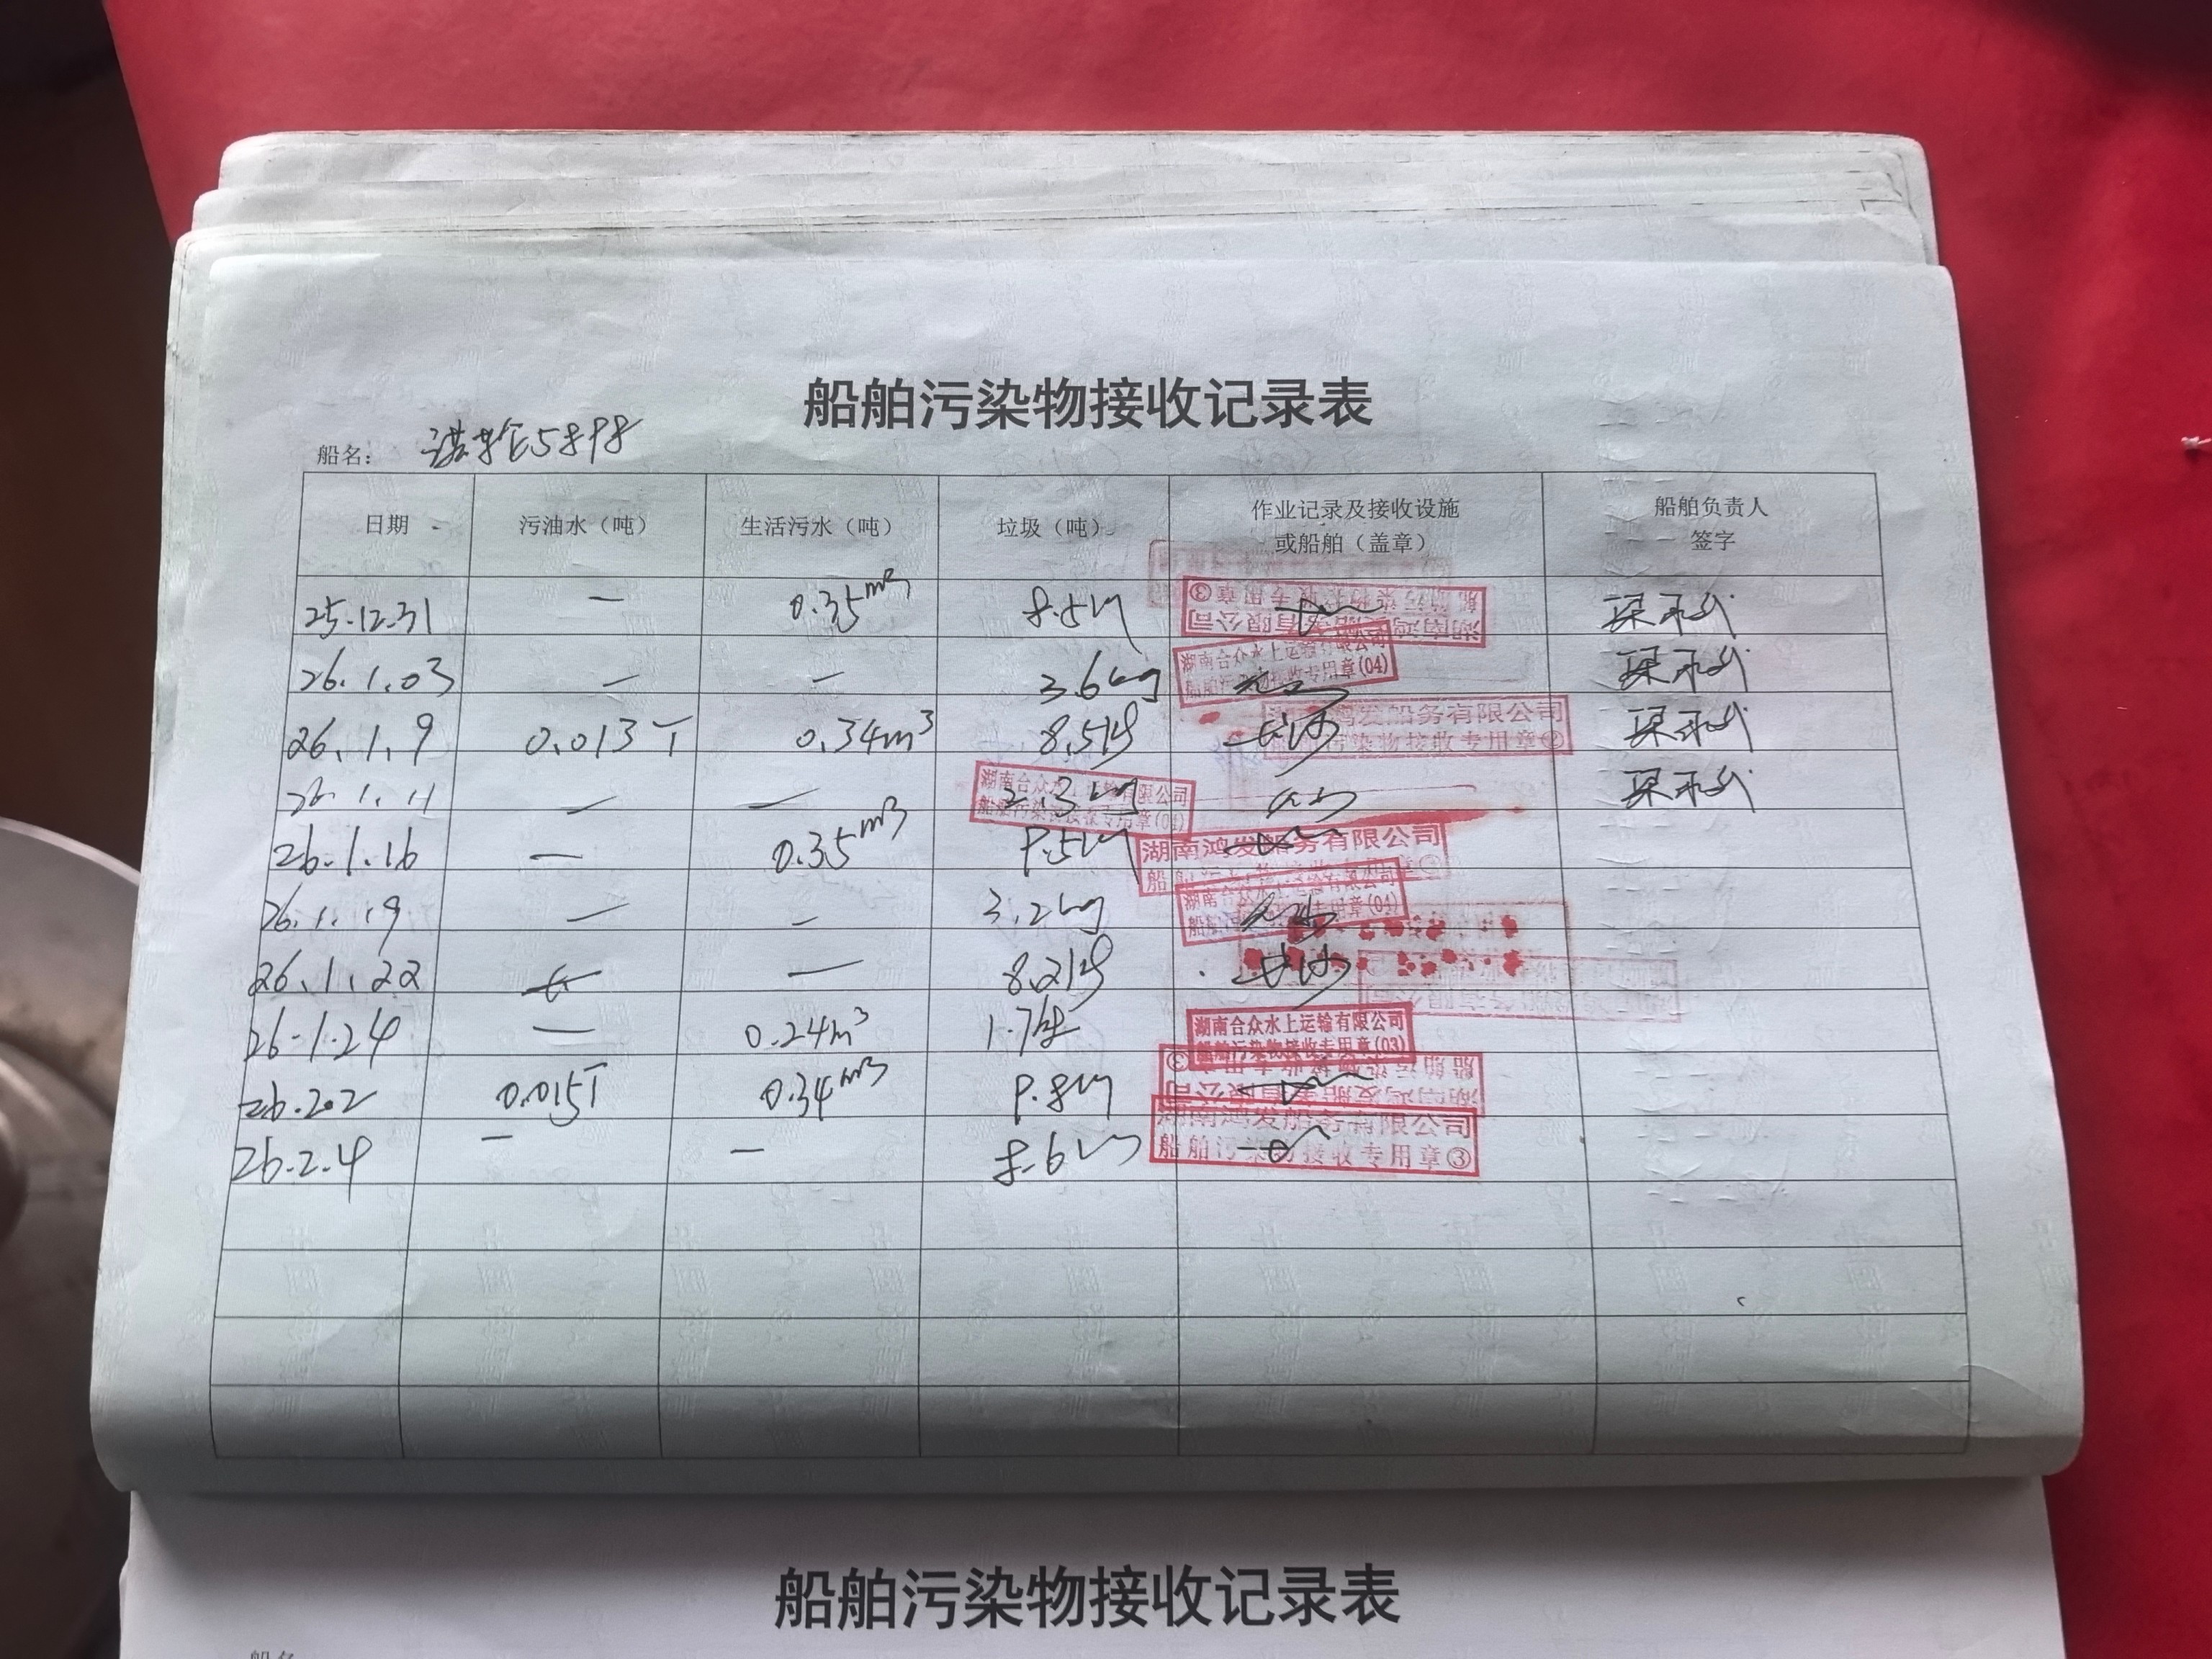 船舶污染物接收记录表
船名： 5898
日期 污油水（吨） 生活污水（吨） 垃圾（吨） 作业记录及接收设施或船舶（盖章） 船舶负责人签字
25.12.31 — 0.35m³ 8.5kg 湖南鸿发船务有限公司 船舶污染物接收专用章③
26.1.03 — — 3.6kg 湖南合众水上运输有限公司 船舶污染物接收专用章(04)
26.1.9 0.013T 0.34m³ 8.5kg 长沙 湖南鸿发船务有限公司 船舶污染物接收专用章
26.1.11 — — 2.3kg 湖南合众水上运输有限公司 船舶污染物接收专用章(04)
26.1.16 — 0.35m³ 9.5kg 湖南鸿发船务有限公司
26.1.19 — — 3.2kg 湖南合众水上运输有限公司 船舶污染物接收专用章(04)
26.1.22 — — 8.2kg 长沙
26.1.24 — 0.24m³ 1.7kg 湖南合众水上运输有限公司 船舶污染物接收专用章(03)
26.2.2 0.015T 0.34m³ 9.8kg 湖南鸿发船务有限公司 船舶污染物接收专用章③
26.2.4 — — 8.6kg 湖南鸿发船务有限公司 船舶污染物接收专用章③
船舶污染物接收记录表
船名